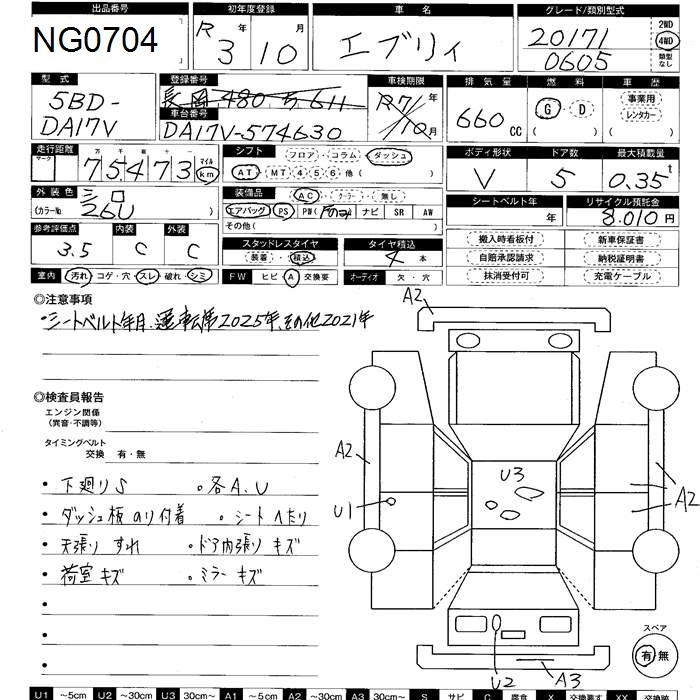 出品番号 初年度登録 車名 グレード/類別型式
NG0704 R3 10 エブリイ 20171 0605 2WD 4WD 類型なし
型式 登録番号 車検期限 排気量 燃料 車歴
5BD-DA17V 長岡 480 ち 611 R7/10 年 月 660 cc G・D ( ) 事業用 レンタカー ( )
車台番号
DA17V-574630
走行距離 シフト フロア・コラム・ダッシュ ボディ形状 ドア数 最大積載量
マーク 十万 万 千 百 十 一 75473 マイル km AT・MT 4 5 6 他( ) V 5 0.35t
外装色 シロ (カラーNo. 26U ) 装備品 AC・クーラー・無し シートベルト 年 リサイクル預託金 8.010円
エアバッグ PS PW( ) ナビ SR AW
その他( )
参考評価点 内装 外装
3.5 C C
スタッドレスタイヤ タイヤ積込
装着・積込 4本
搬入時看板付 新車保証書
自賠承認請求 納税証明書
抹消受付可 充電ケーブル
室内 汚れ コゲ・穴・スレ 破れ・シミ FW ヒビ A 交換要 オーディオ 欠・穴
◎注意事項
・シートベルト年月、運転席2025年、その他2021年
◎検査員報告
エンジン関係
(異音・不調等)
タイミングベルト
交換 有・無
・下廻りS ・各A、U
・ダッシュ板のり付着 ・シートへたり
・天張りすれ ・ドア内張りキズ
・荷室キズ ・ミラーキズ
A2
A2
U3
U1
A2
U2
A3
スペア
有 無
U1 ~5cm U2 ~30cm U3 30cm~ A1 ~5cm A2 ~30cm A3 30cm~ S サビ C 腐食 X 交換要す XX 交換跡